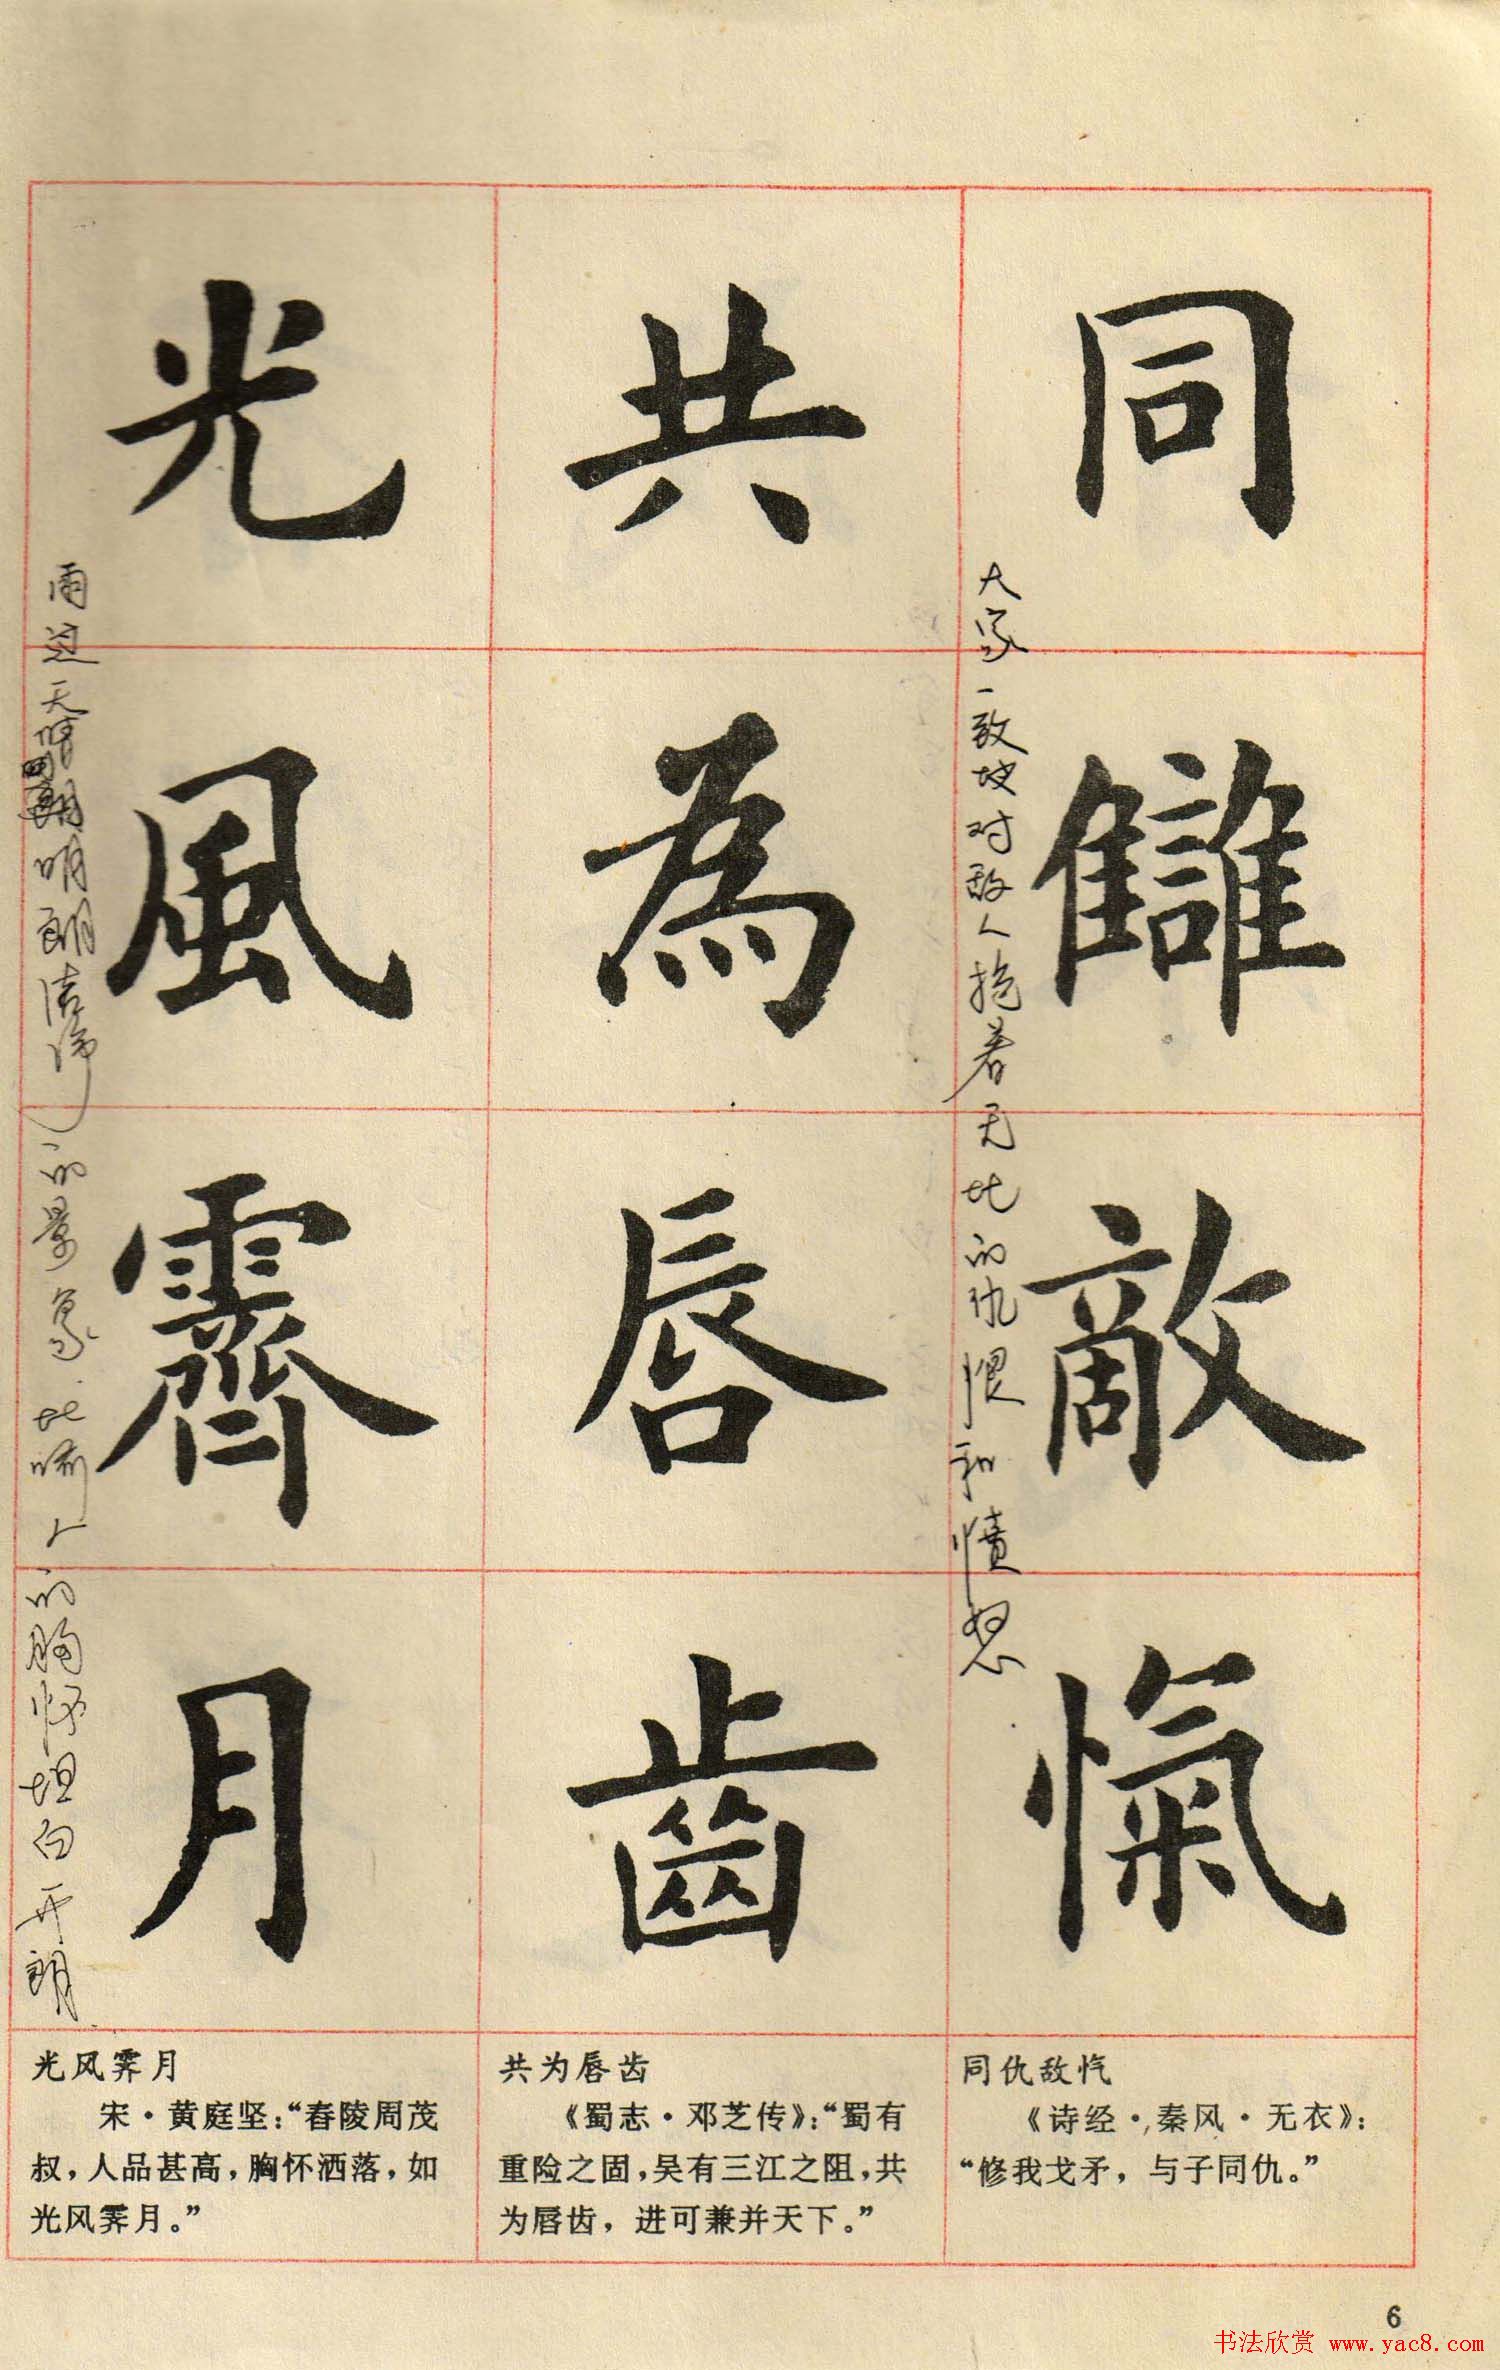 同讎敵愾
大家一致地对敌人抱着无比的仇恨和愤怒
共為唇齒
光風霽月
雨过天晴明朗洁净的景象.比喻人的胸怀坦白开朗
同仇敌忾
《诗经·秦风·无衣》：
“修我戈矛，与子同仇。”
共为唇齿
《蜀志·邓芝传》：“蜀有
重险之固，吴有三江之阻，共
为唇齿，进可兼并天下。”
光风霁月
宋·黄庭坚：“舂陵周茂
叔，人品甚高，胸怀洒落，如
光风霁月。”
6
书法欣赏 www.yac8.com